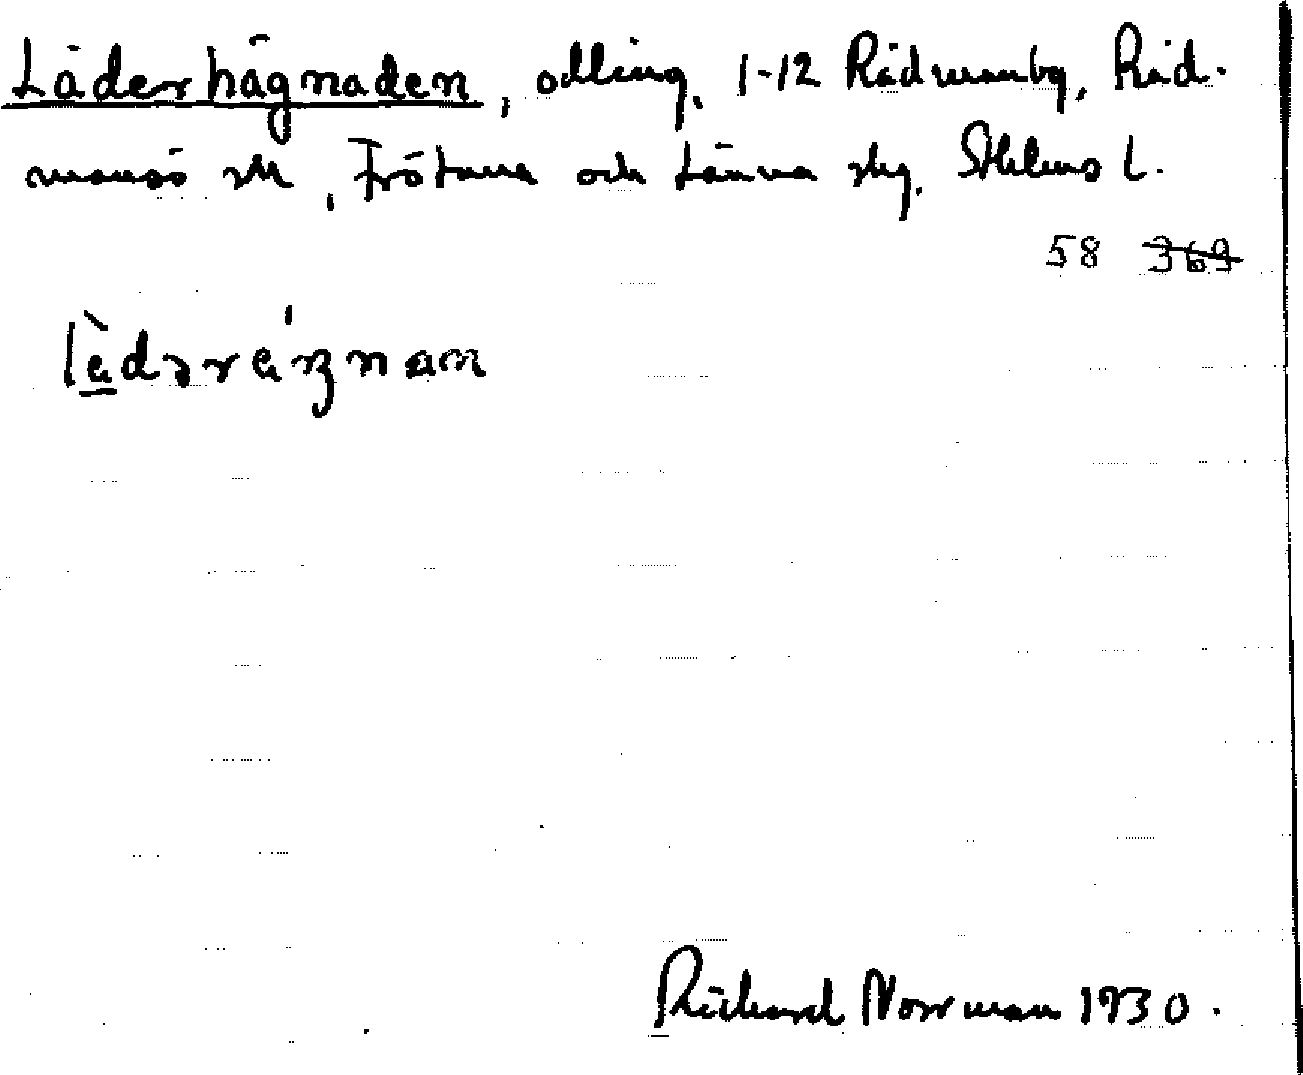 Läderhägnaden, odling, 1-12 Rådmanby, Råd-
mansö sn, Frötuna och Länna skg. Sthlms l.
58 369
lädərägnan
Richard Norrman 1930.